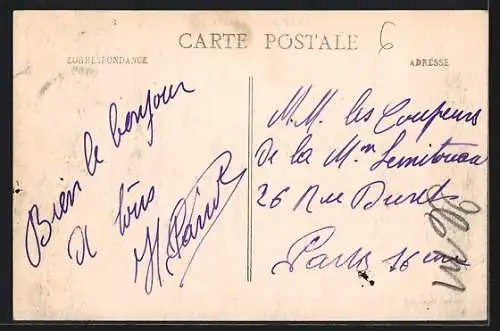 CARTE POSTALE
6
CORRESPONDANCE
ADRESSE
Bien le bonjour
à tous
M.M. les Coupeurs
de la M.on
26 Rue Duret
Paris 16 em